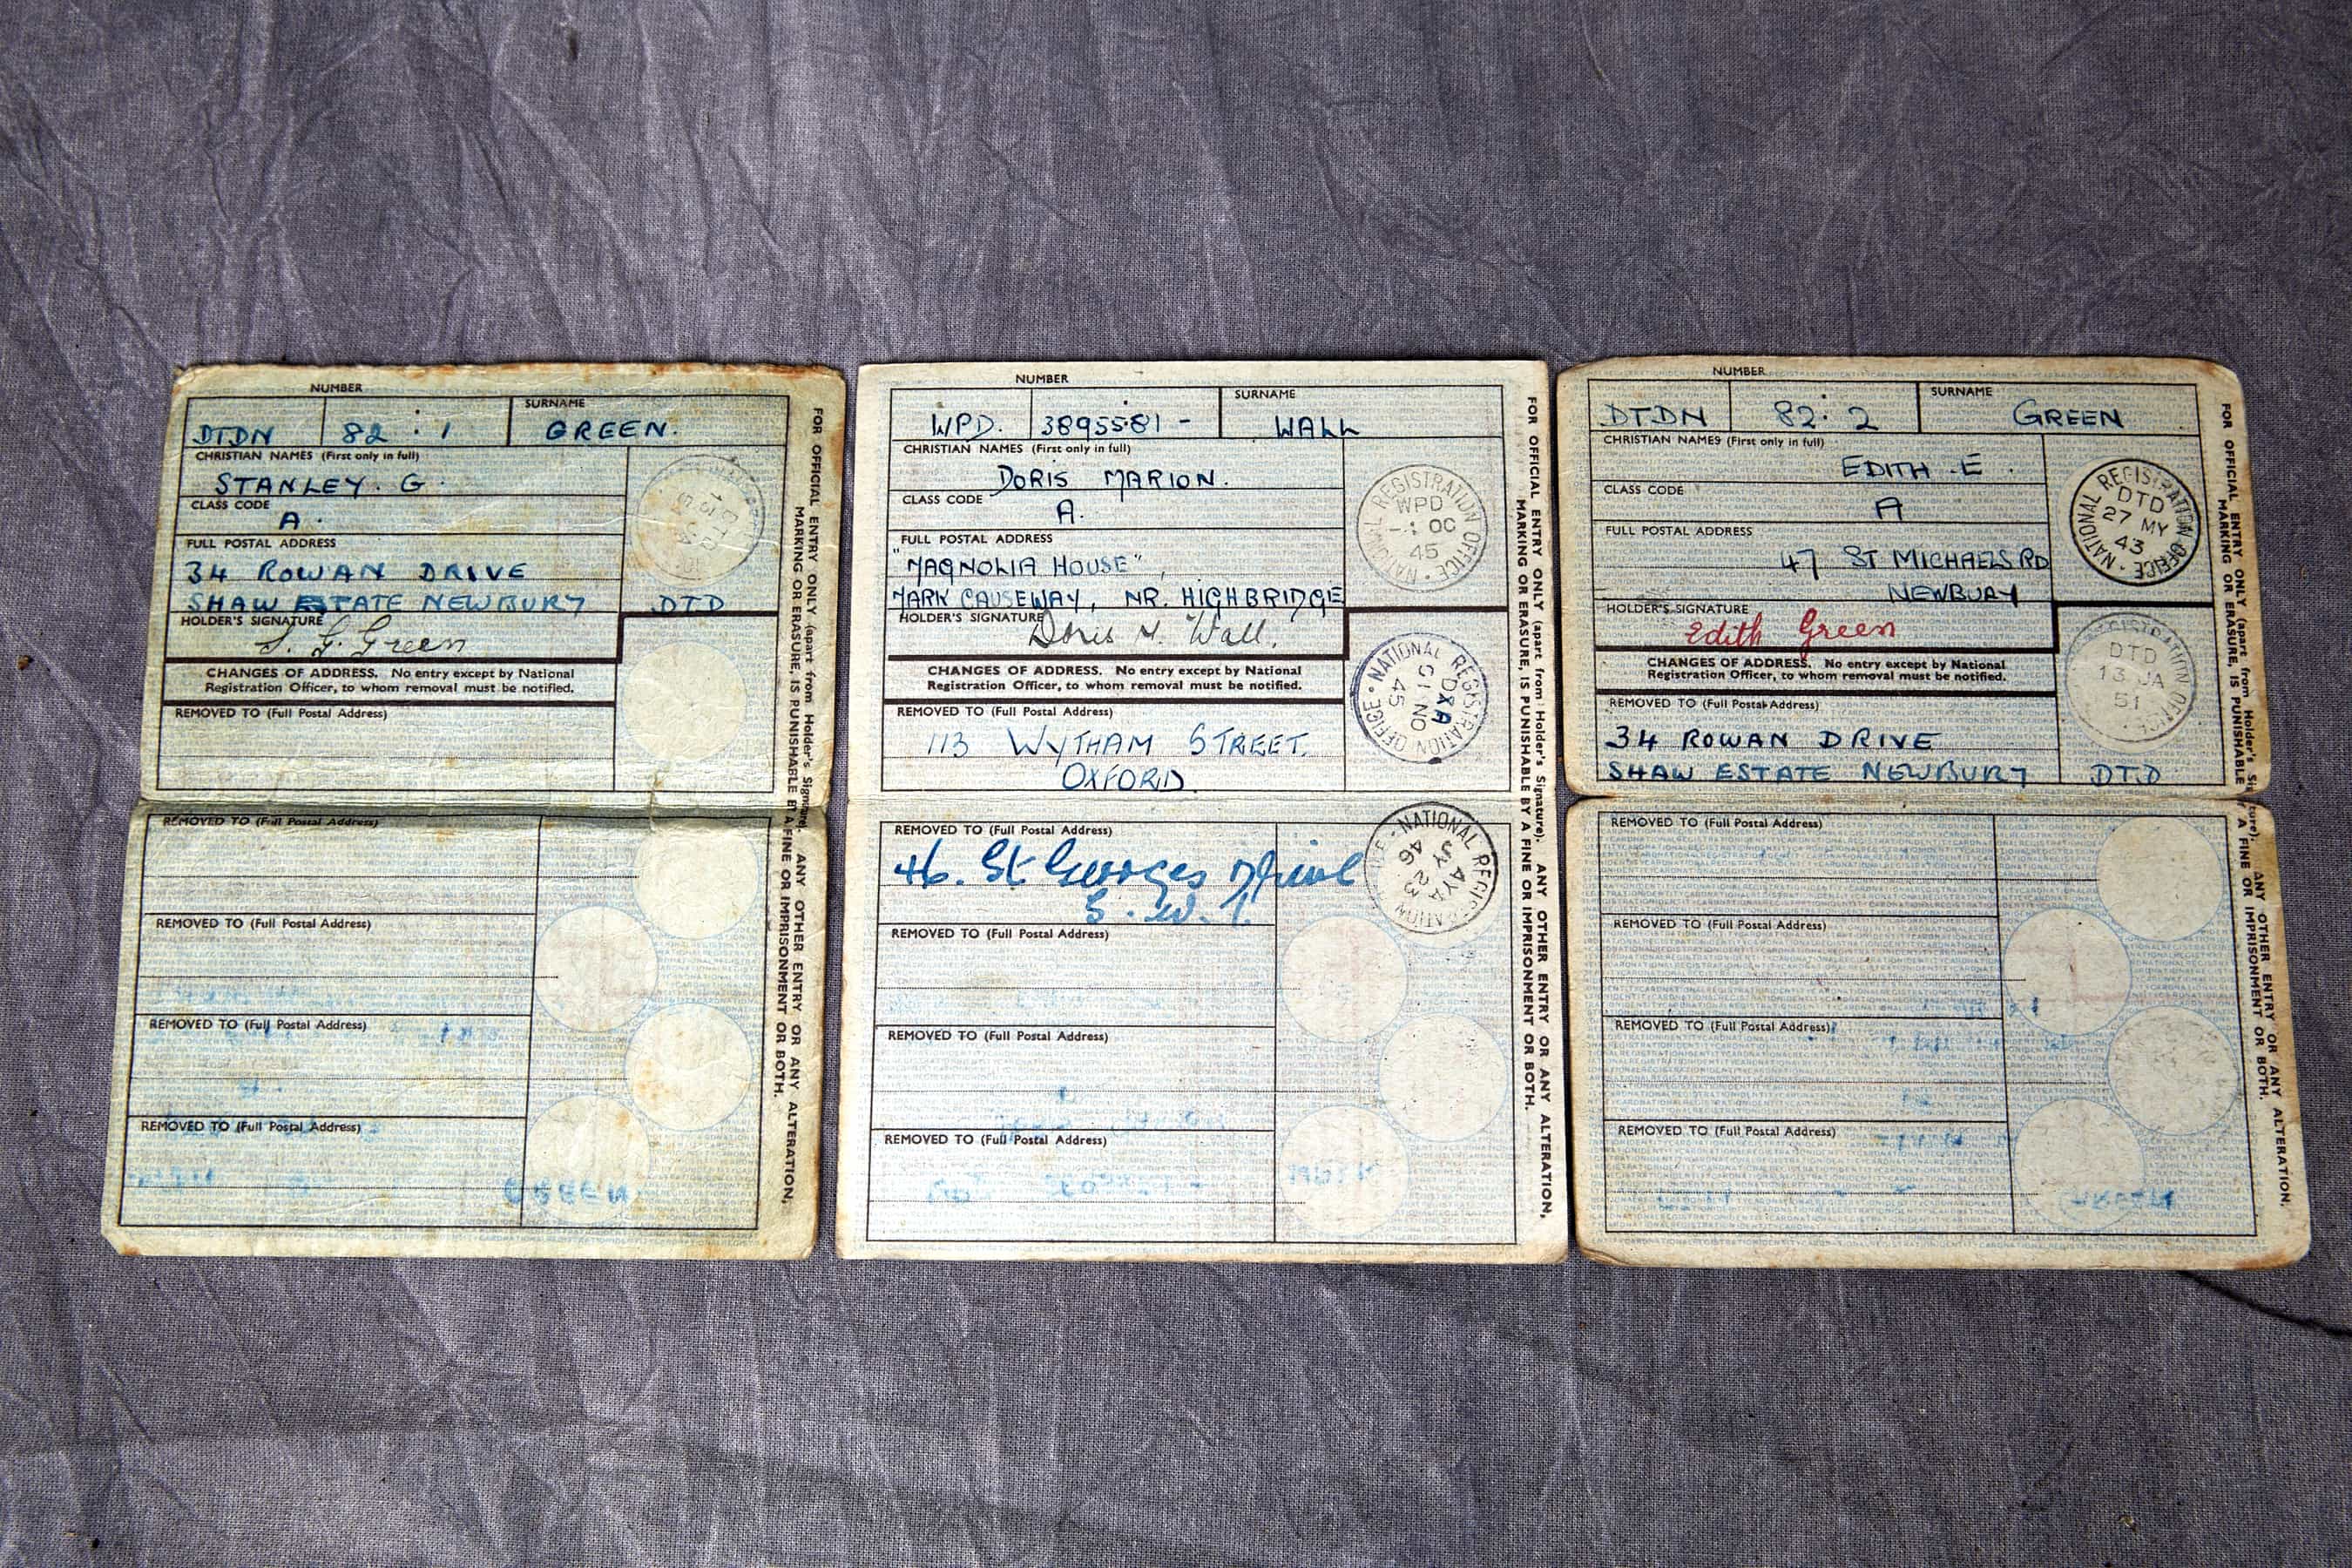 NUMBER
SURNAME
DTDN 82 . 1 GREEN.
CHRISTIAN NAMES (First only in full)
STANLEY. G.
CLASS CODE
A.
FULL POSTAL ADDRESS
34 ROWAN DRIVE
SHAW ESTATE NEWBURY DTD
HOLDER'S SIGNATURE
S. G. Green
CHANGES OF ADDRESS. No entry except by National
Registration Officer, to whom removal must be notified.
REMOVED TO (Full Postal Address)
REMOVED TO (Full Postal Address)
REMOVED TO (Full Postal Address)
REMOVED TO (Full Postal Address)
REMOVED TO (Full Postal Address)
FOR OFFICIAL ENTRY ONLY (apart from Holder's Signature). ANY OTHER ENTRY OR ANY ALTERATION,
MARKING OR ERASURE, IS PUNISHABLE BY A FINE OR IMPRISONMENT OR BOTH.
NUMBER
SURNAME
WPD. 3895581 - WALL
CHRISTIAN NAMES (First only in full)
DORIS MARION.
CLASS CODE
A.
FULL POSTAL ADDRESS
"MAGNOLIA HOUSE",
MARK CAUSEWAY, NR. HIGHBRIDGE
HOLDER'S SIGNATURE
Doris M. Wall.
NATIONAL REGISTRATION OFFICE
WPD
-1 OC
45
CHANGES OF ADDRESS. No entry except by National
Registration Officer, to whom removal must be notified.
REMOVED TO (Full Postal Address)
113 WYTHAM STREET.
OXFORD.
NATIONAL REGISTRATION OFFICE
DXA
C1 NO
45
REMOVED TO (Full Postal Address)
46. St Georges Drive
S. W. 1.
NATIONAL REGISTRATION
AYA
23
JY 46
REMOVED TO (Full Postal Address)
REMOVED TO (Full Postal Address)
REMOVED TO (Full Postal Address)
FOR OFFICIAL ENTRY ONLY (apart from Holder's Signature). ANY OTHER ENTRY OR ANY ALTERATION,
MARKING OR ERASURE, IS PUNISHABLE BY A FINE OR IMPRISONMENT OR BOTH.
NUMBER
SURNAME
DTDN 82. 2 GREEN
CHRISTIAN NAMES (First only in full)
EDITH . E .
CLASS CODE
A
FULL POSTAL ADDRESS
47 ST MICHAELS RD
NEWBURY
HOLDER'S SIGNATURE
Edith Green
NATIONAL REGISTRATION OFFICE
DTD
27 MY
43
CHANGES OF ADDRESS. No entry except by National
Registration Officer, to whom removal must be notified.
REMOVED TO (Full Postal Address)
34 ROWAN DRIVE
SHAW ESTATE NEWBURY DTD
REGISTRATION OFFICE
DTD
13 JA
51
REMOVED TO (Full Postal Address)
REMOVED TO (Full Postal Address)
REMOVED TO (Full Postal Address)
REMOVED TO (Full Postal Address)
FOR OFFICIAL ENTRY ONLY (apart from Holder's Signature). ANY OTHER ENTRY OR ANY ALTERATION,
MARKING OR ERASURE, IS PUNISHABLE BY A FINE OR IMPRISONMENT OR BOTH.